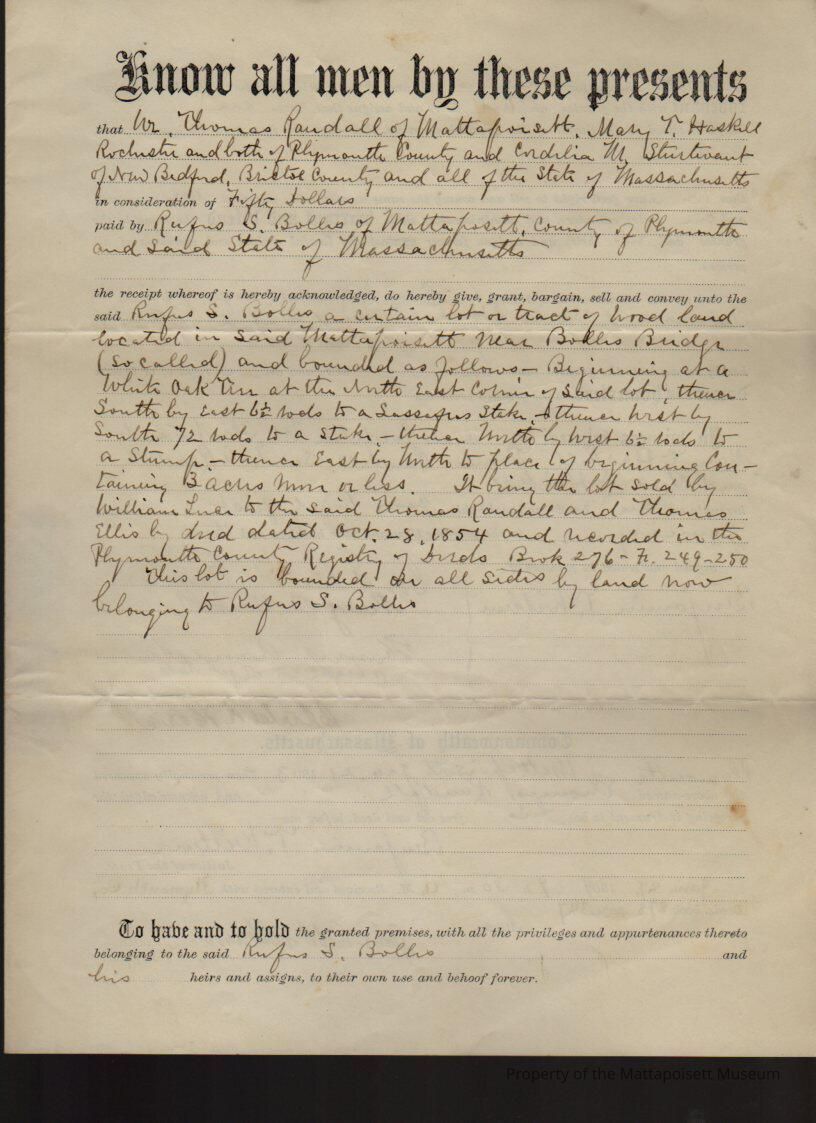 Know all men by these presents
that We, Thomas Randall of Mattapoisett, Mary T. Haskell
Rochester and both of Plymouth County and Cordelia M. Sturtevant
of New Bedford, Bristol County and all of the State of Massachusetts
in consideration of Fifty Dollars
paid by Rufus S. Bolles of Mattapoisett, County of Plymouth
and Said State of Massachusetts
the receipt whereof is hereby acknowledged, do hereby give, grant, bargain, sell and convey unto the
said Rufus S. Bolles a certain lot or tract of wood land
located in said Mattapoisett near Bolles Bridge
(so called) and bounded as follows – Beginning at a
White Oak Tree at the North East Corner of said lot, thence
South by East 6½ rods to a Sassefras Stake, – thence West by
South 72 rods to a Stake, – thence North by West 6½ rods to
a Stump – thence East by North to place of beginning Con-
taining 3 acres more or less. It being the lot sold by
William Luce to the said Thomas Randall and Thomas
Ellis by deed dated Oct. 28, 1854 and recorded in the
Plymouth County Registry of Deeds Book 276 – F. 249-250
This lot is bounded on all sides by land now
belonging to Rufus S. Bolles
Commonwealth of Massachusetts.
To have and to hold the granted premises, with all the privileges and appurtenances thereto
belonging to the said Rufus S. Bolles and
his heirs and assigns, to their own use and behoof forever.
Property of the Mattapoisett Museum